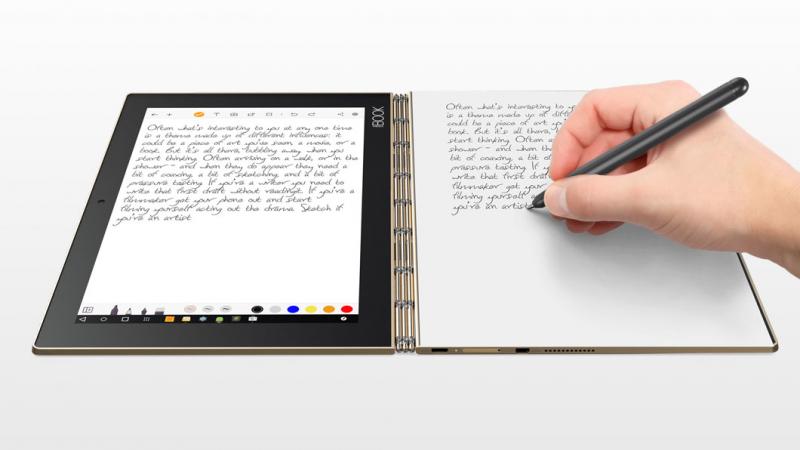 Often what's interesting to you at any one time
is a theme made up of different influences: it
could be a piece of art you've seen, a movie, or a
book. But it's all there, bubbling away when you
start thinking. Often arriving on a walk, or in the
shower - and when they do appear they need a
bit of coaxing, a bit of sketching, and a bit of
pressure testing. If you're a writer you need to
write that first draft without reading it. If you're a
filmmaker get your phone out and start
filming yourself acting out the drama. Sketch if
you're an artist
BOOK
Often what's interesting to
is a theme made up of
could be a piece of art
book. But it's all there,
start thinking. Often
shower - and when
bit of coaxing, a bit of
pressure testing. If
write that first draft
filmmaker get your
filming yourself
you're an artist